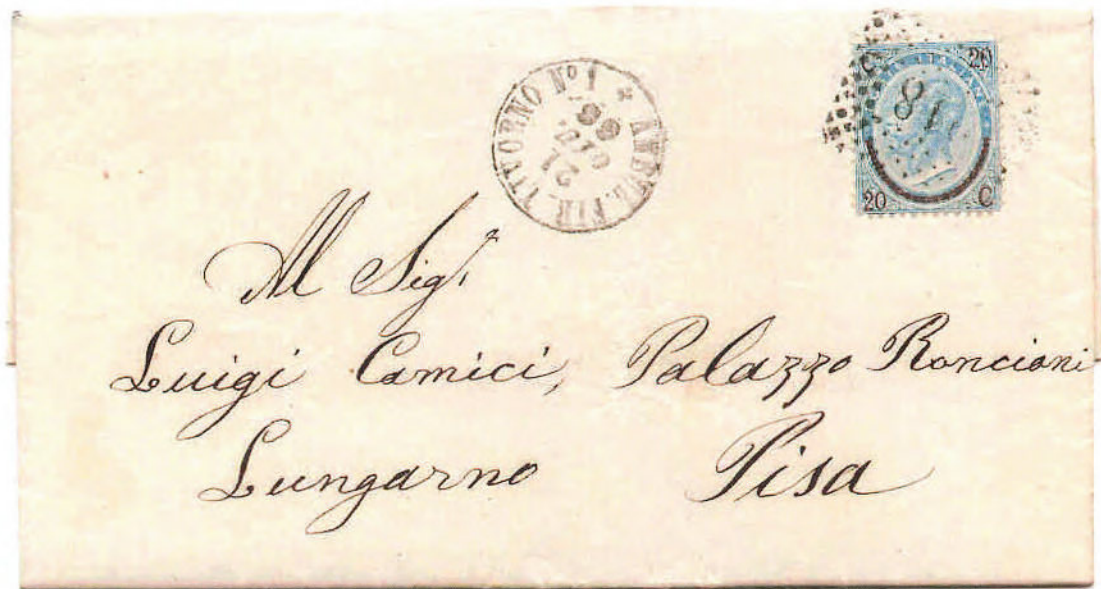 AMBUL. FIR. LIVORNO Nº 1
66
GIU
C 20
20 C
Al Sigr
Luigi Camici, Palazzo Roncioni
Lungarno Pisa